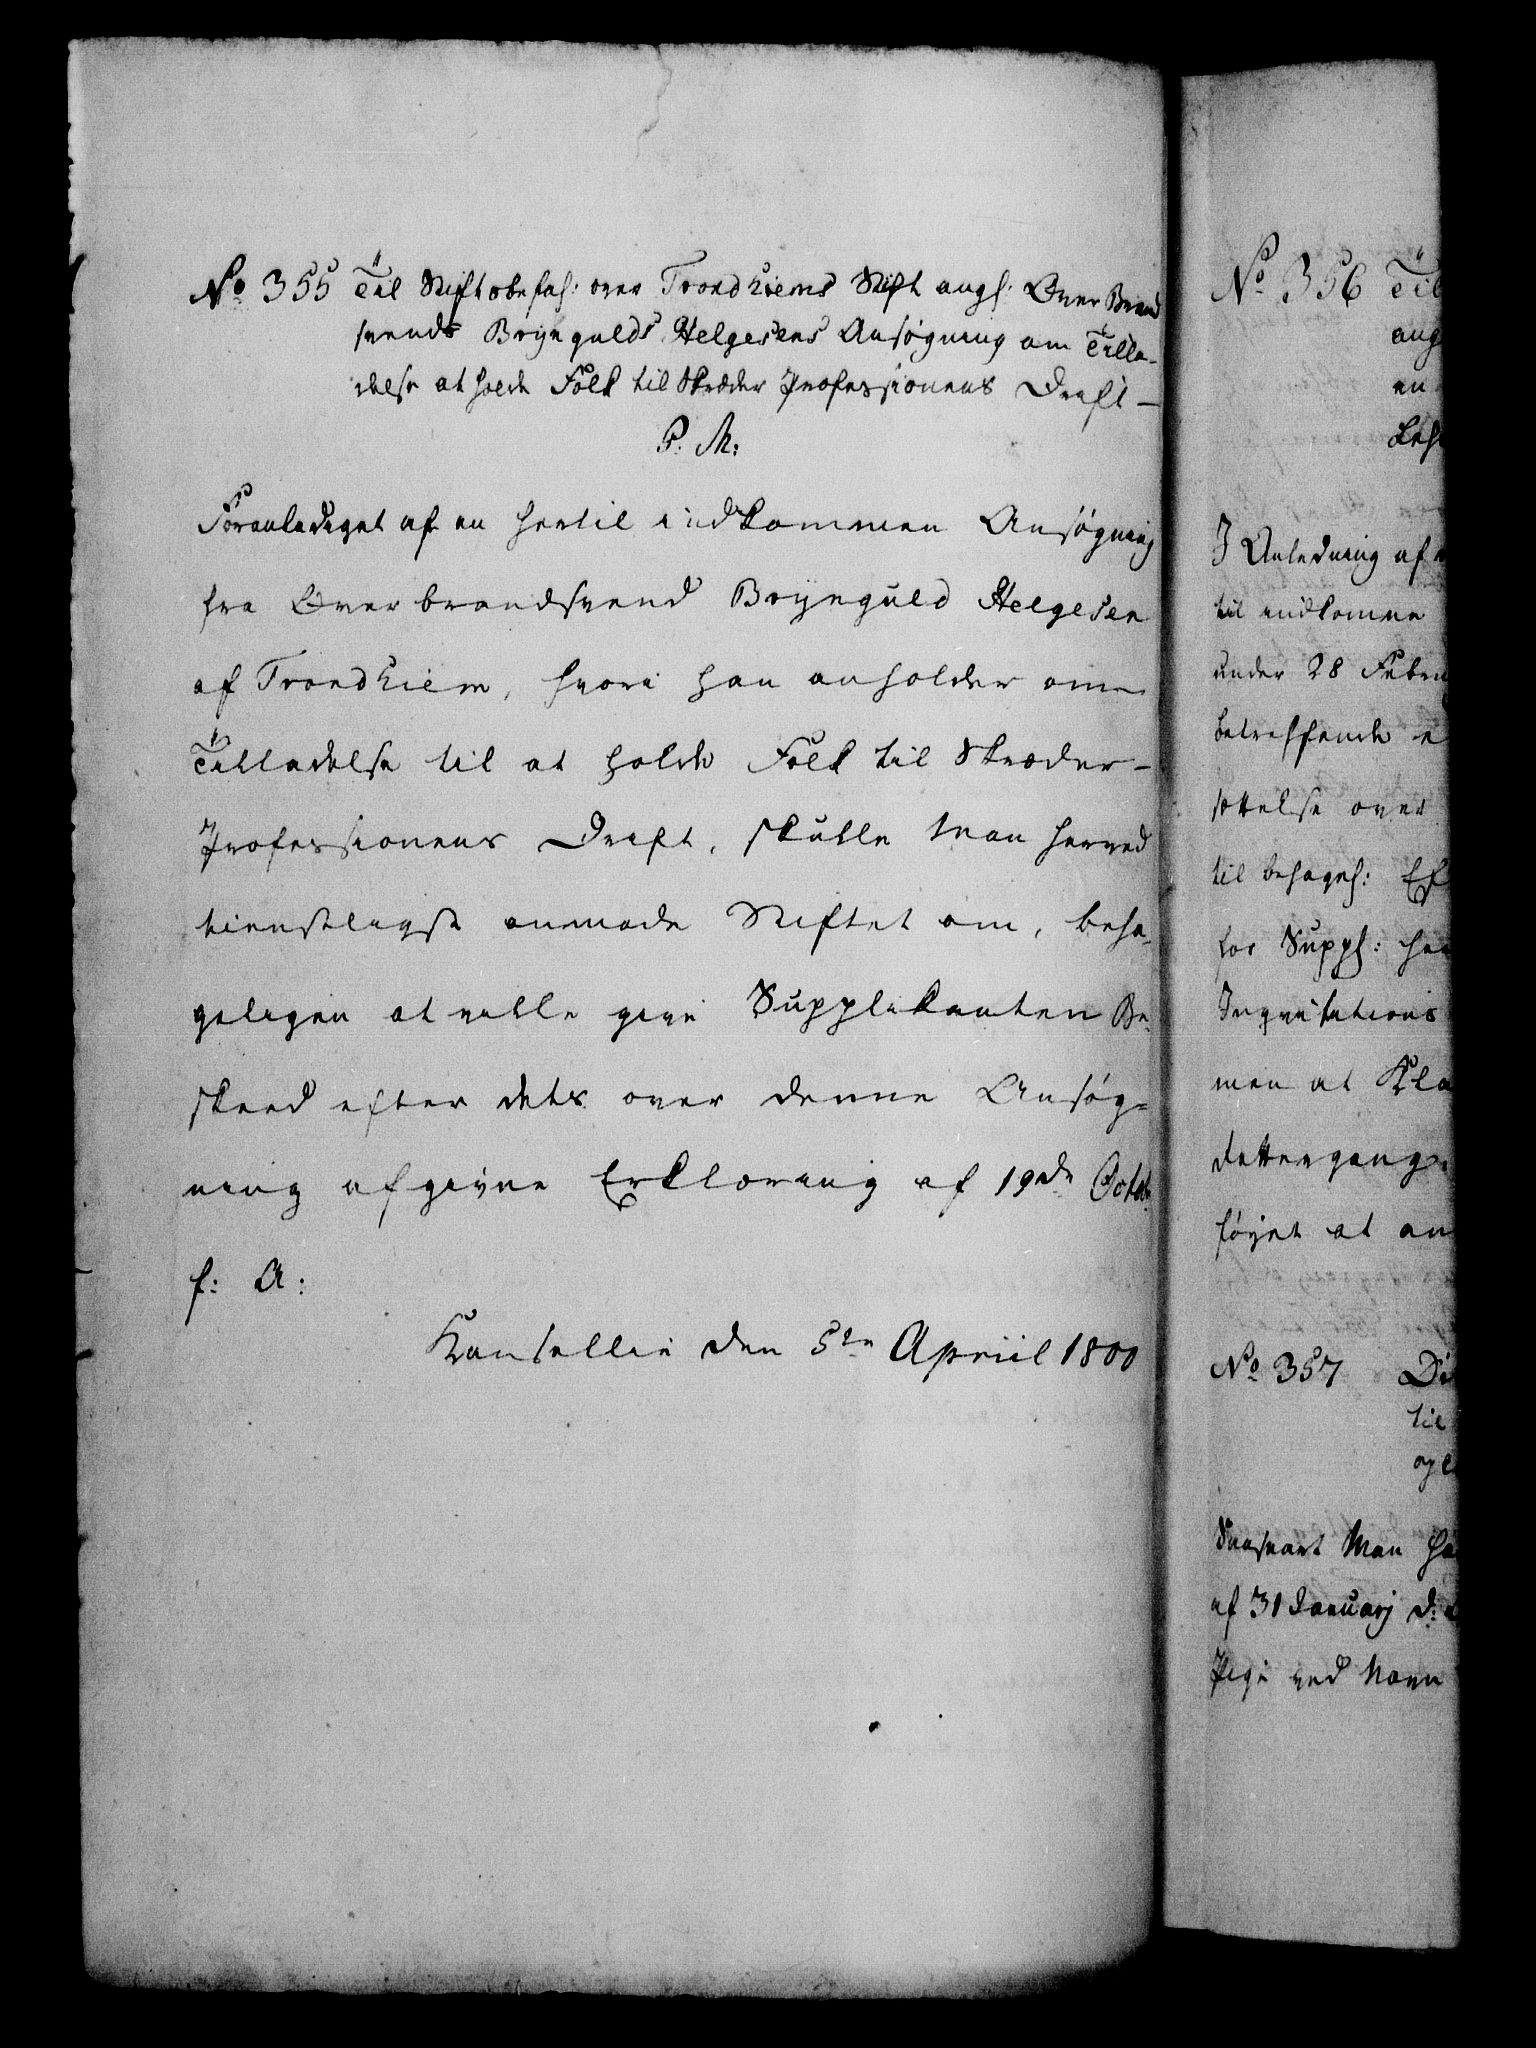 No 355 Til Stiftsbefah: over Trondhiems Stift angh: Over Brand
svends Bryngulds Helgesens Ansøgning om Tilla-
delse at holde Folk til Skræder Professionens Drift —
P. M:
Foranlediget af en hertil indkommen Ansøgning
fra Overbrandsvend Brynguld Helgesen
af Trondhiem, hvori han anholder om
Tilladelse til at holde Folk til Skræder-
Professionens Drift, skulle man herved
tienstligst anmode Stiftet om, beha-
geligen at ville give Supplikanten Be-
skeed efter dets over denne Ansøg-
ning afgivne Erklæring af 19de Octob:
f: A:
Kantsellie den 5te Apriil 1800
No 356 Til
ang
en
Besk
I Anledning af
til indkomne
under 28 Febru
betreffende e
sættelse over
til behagel: Ef
for Suppl: her
Inqvisitions
men at Kla
Rettergangs
føyet at an
No 357 Di
til
og
Saasnart Man ha
af 31 Januarj d:
Pige ved Navn